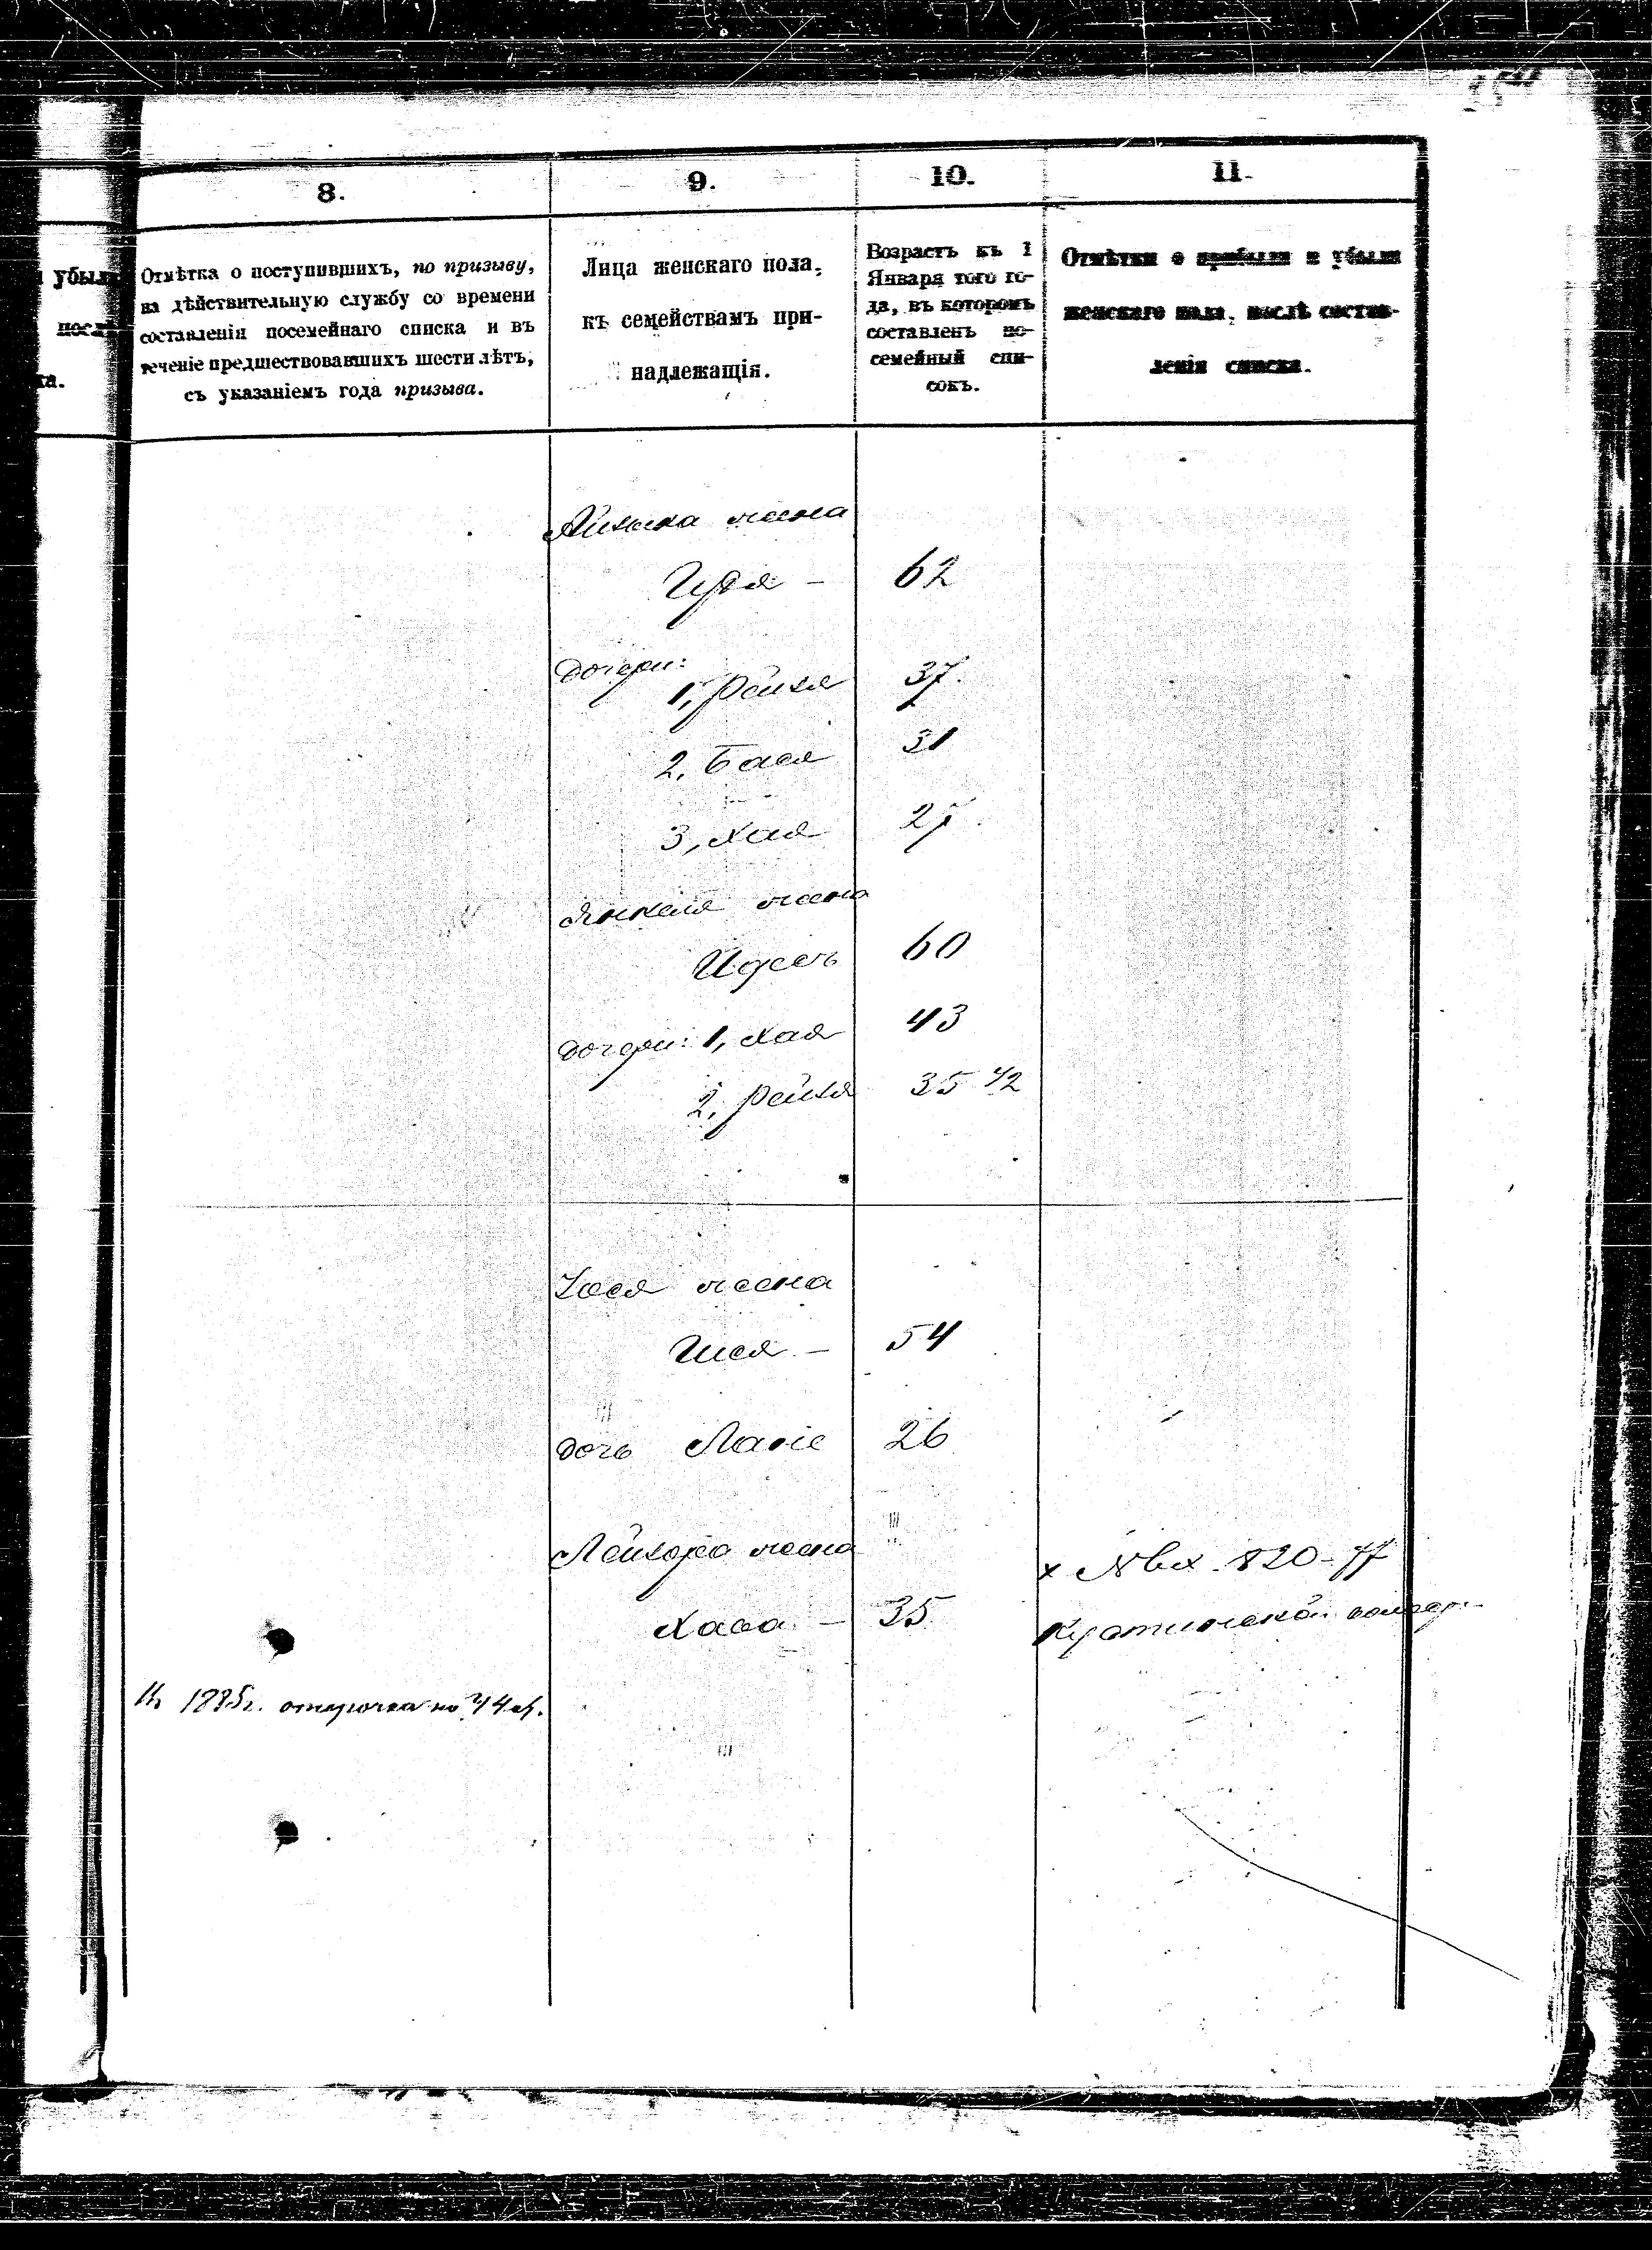 8.
9.
10.
11.
убыли
посл
ка.
Отмѣтка о поступившихъ, по призыву,
на дѣйствительную службу со времени
составленія посемейнаго списка и въ
теченіе предшествовавшихъ шести лѣтъ,
съ указаніемъ года призыва.
Лица женскаго пола,
къ семействамъ при-
надлежащія.
Возрастъ къ 1
Января того го-
да, въ которомъ
составленъ по-
семейный спи-
сокъ.
Отмѣтки о прибыли и убыли
женскаго пола, послѣ состав-
ленія списка.
жена
62
дочери:
1, Рейзя 37.
2, Бася 31
3, Хая
Янкеля жена
Идесь 60
дочери: 1, Хая 43
2, Рейзя 35 1/2
Іося жена
54
дочь 26
Лейзора жена
Хава – 35
х №вх. 820 – 77
1895г. отсрочка по 44 ст.